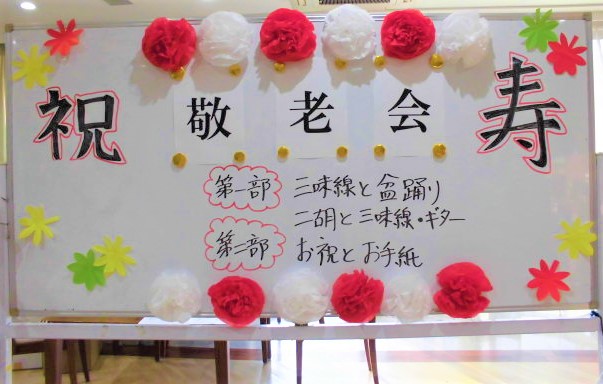 祝 敬老会 寿
第一部 三味線と盆踊り
二胡と三味線・ギター
第二部 お祝とお手紙